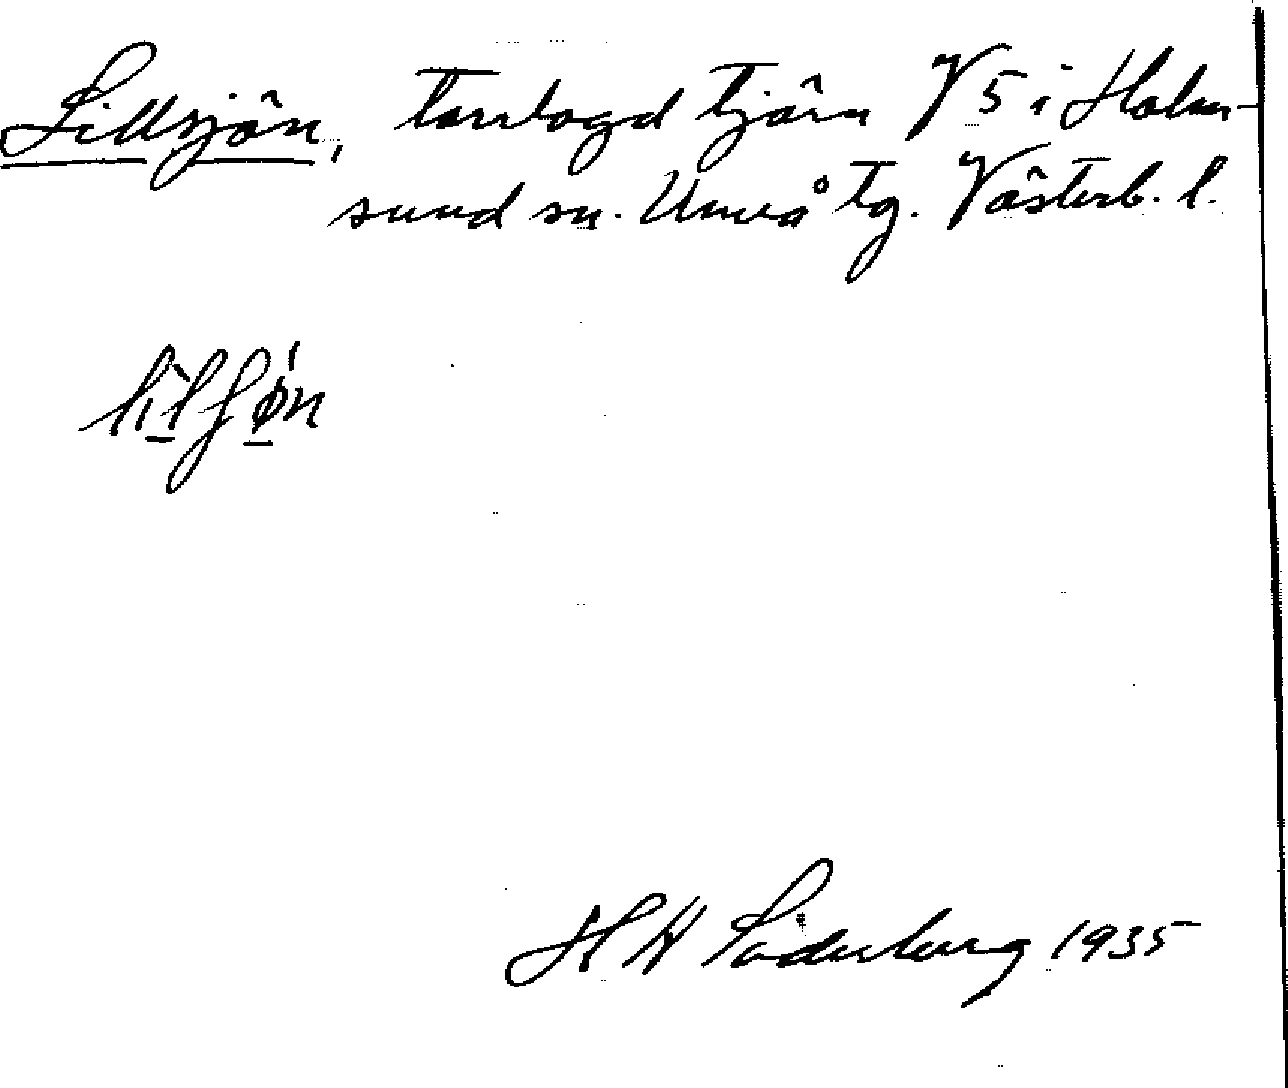 Lillsjön, torrlagd tjärn V 5 i Holm-
sund sn. Umeå tg. Västerb. l.
H W Söderberg 1935